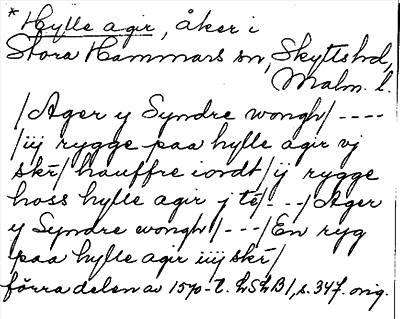 * Hylle agir, åker i
Stora Hammars sn, Skyttshd,
Malm. l.
/Ager y Syndre wongh/----
/iij rygge paa hylle agir vj
skr/ hauffre iordt/ij rygge
hoss hylle agir j te/---/Ager
y Syndre wongh/---/En ryg
paa hylle agir iiij skr/
förra delen av 1570-t. LSLB1, s. 347. orig.